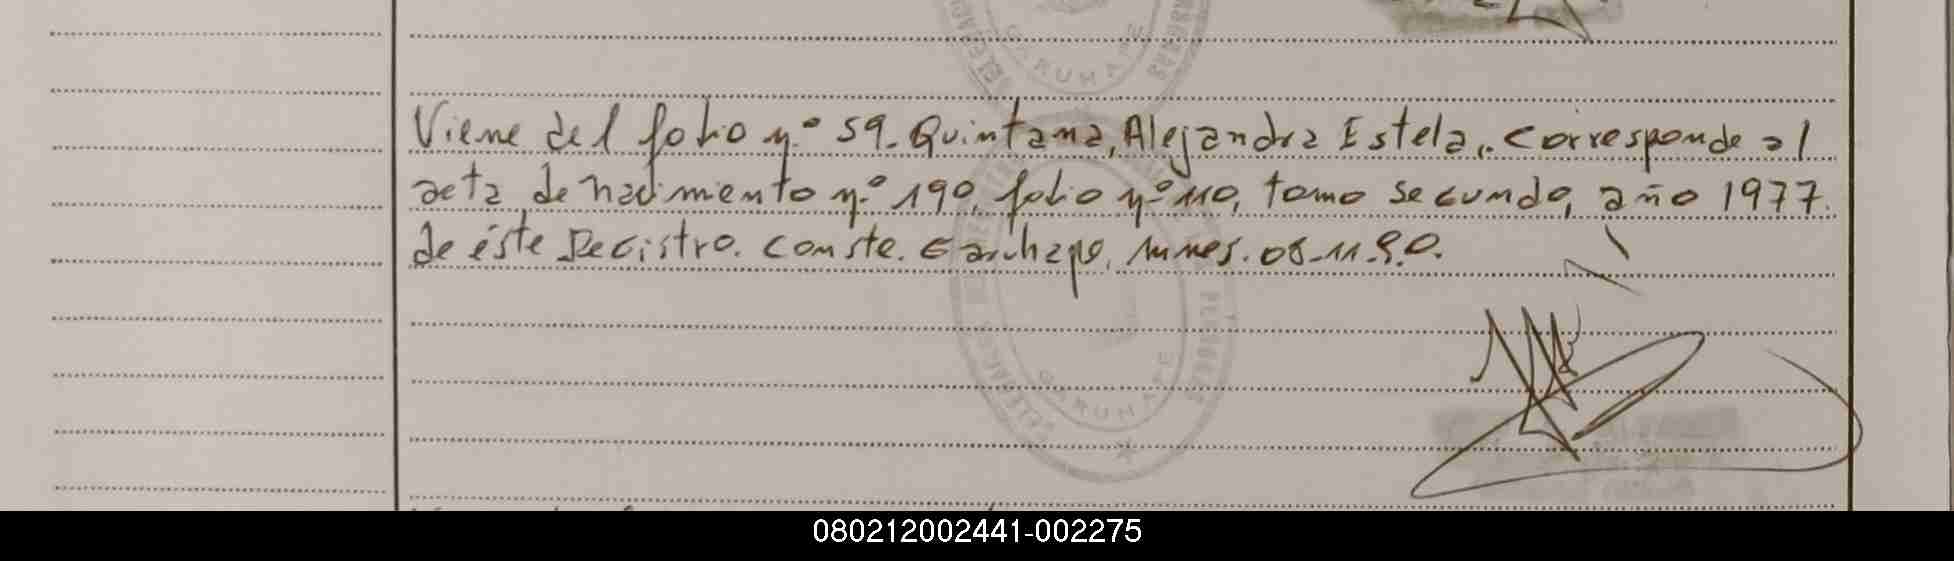 Viene del folio n.º 59. Quintana, Alejandra Estela,. corresponde al
acta de nacimiento n.º 190, folio nº 110, tomo secundo, año 1977.
de éste Recistro. conste. Garuhape, Mnes. 08-11-90.
GARUHAPE
GARUHAPE
080212002441-002275